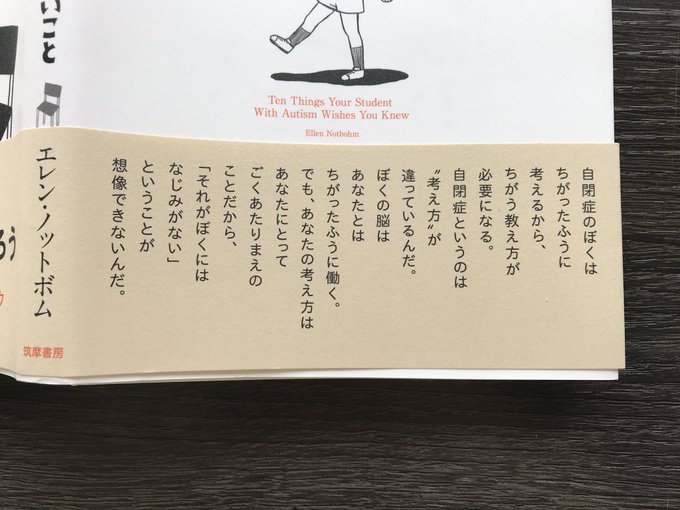 いこと
Ten Things Your Student
With Autism Wishes You Knew
Ellen Notbohm
自閉症のぼくは
ちがったふうに
考えるから、
ちがう教え方が
必要になる。
自閉症というのは
〝考え方〟が
違っているんだ。
ぼくの脳は
あなたとは
ちがったふうに働く。
でも、あなたの考え方は
あなたにとって
ごくあたりまえの
ことだから、
「それがぼくには
なじみがない」
ということが
想像できないんだ。
エレン・ノットボム
筑摩書房
ろう